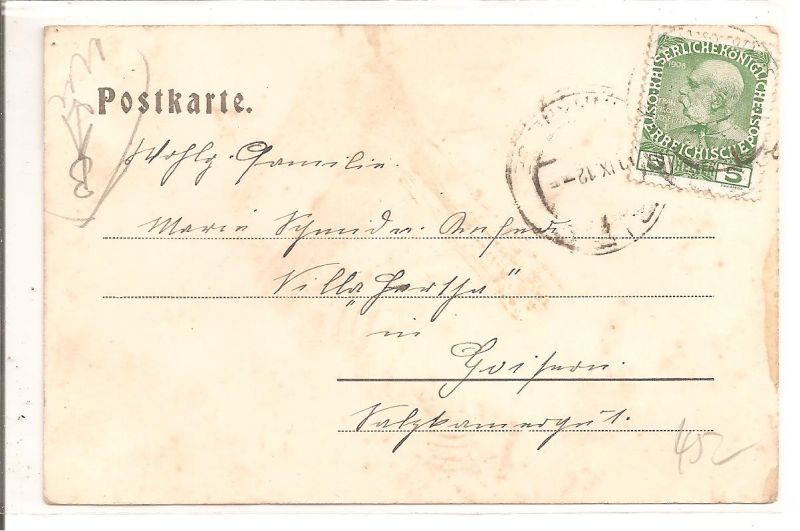 Postkarte.
KAISERLICHE KÖNIGLICHE
ÖSTERREICHISCHE POST
1908
5 5
IX.12
Wohlg. Familie
Maria Schmid
Villa „Hertha"
in
Goisern.
Salzkamergut.
452